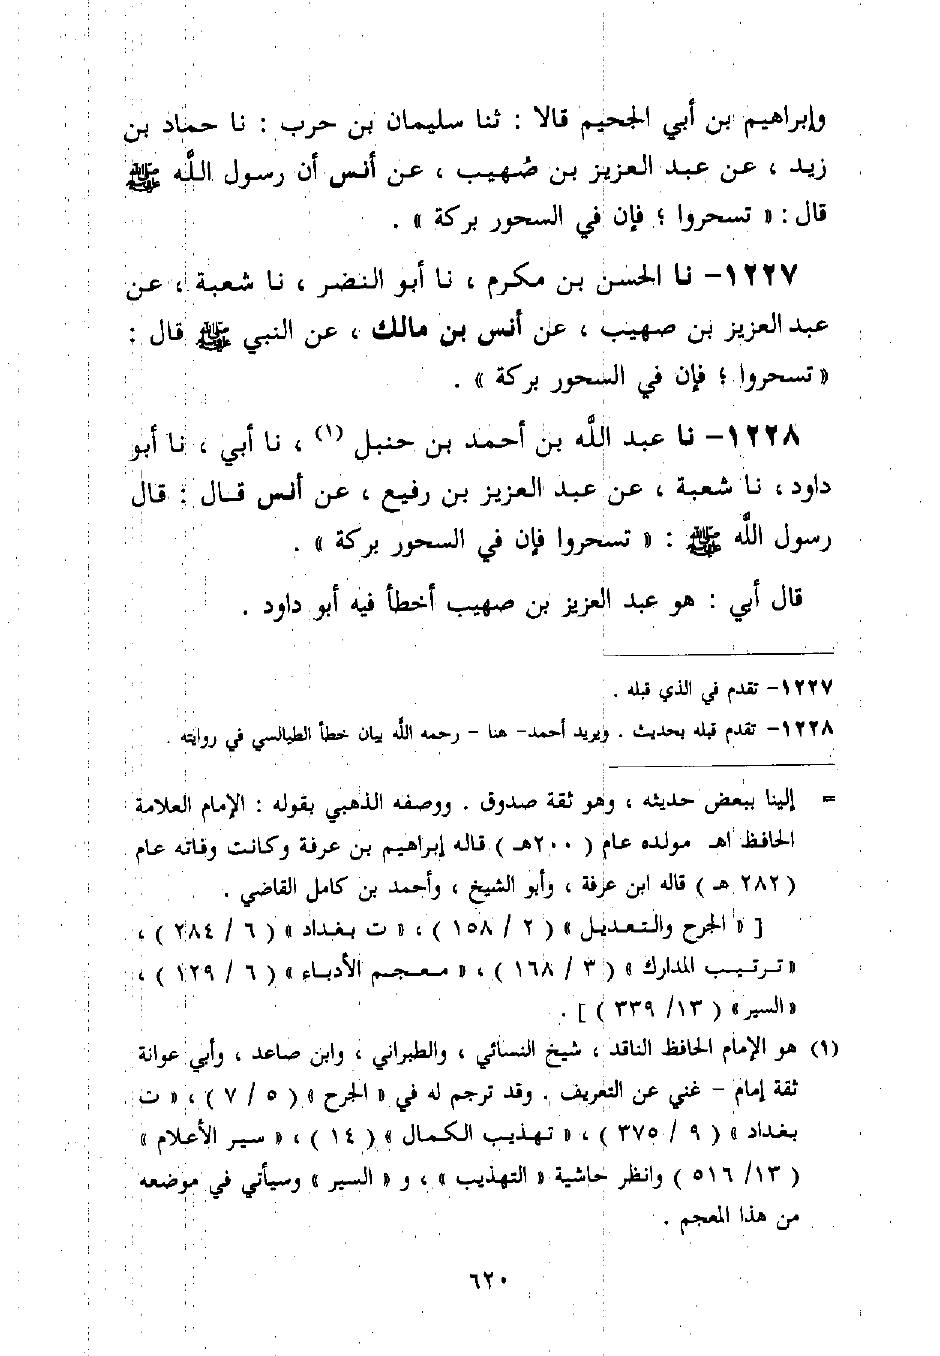 وإبراهيم بن أبي الجحيم قالا : ثنا سليمان بن حرب : نا حماد بن
زيد ، عن عبد العزيز بن صُهيب ، عن أنس أن رسول اللَّه ﷺ
قال : « تسحروا ؛ فإن في السحور بركة » .
١٢٢٧- نا الحسن بن مكرم ، نا أبو النضر ، نا شعبة ، عن
عبد العزيز بن صهيب ، عن أنس بن مالك ، عن النبي ﷺ قال :
« تسحروا ؛ فإن في السحور بركة » .
١٢٢٨- نا عبد اللَّه بن أحمد بن حنبل (١) ، نا أبي ، نا أبو
داود ، نا شعبة ، عن عبد العزيز بن رفيع ، عن أنس قال : قال
رسول اللَّه ﷺ : « تسحروا فإن في السحور بركة » .
قال أبي : هو عبد العزيز بن صهيب أخطأ فيه أبو داود .
١٢٢٧- تقدم في الذي قبله .
١٢٢٨- تقدم قبله بحديث . ويريد أحمد- هنا - رحمه اللَّه بيان خطأ الطيالسي في روايته .
= إلينا ببعض حديثه ، وهو ثقة صدوق . ووصفه الذهبي بقوله : الإمام العلامة
الحافظ اهـ مولده عام ( ٢٠٠هـ ) قاله إبراهيم بن عرفة وكانت وفاته عام
( ٢٨٢ هـ ) قاله ابن عرفة ، وأبو الشيخ ، وأحمد بن كامل القاضي .
[ « الجرح والتعديل » ( ٢ / ١٥٨ ) ، « ت بغداد » ( ٦ / ٢٨٤ ) ،
« ترتيب المدارك » ( ٣ / ١٦٨ ) ، « معجم الأدباء » ( ٦ / ١٢٩ ) ،
« السير » ( ١٣/ ٣٣٩ ) ] .
(١) هو الإمام الحافظ الناقد ، شيخ النسائي ، والطبراني ، وابن صاعد ، وأبي عوانة
ثقة إمام - غني عن التعريف . وقد ترجم له في « الجرح » ( ٥ / ٧ ) ، « ت
بغداد » ( ٩ / ٣٧٥ ) ، « تهذيب الكمال » ( ١٤ ) ، « سير الأعلام »
( ١٣/ ٥١٦ ) وانظر حاشية « التهذيب » ، و « السير » وسيأتي في موضعه
من هذا المعجم .
٦٢٠